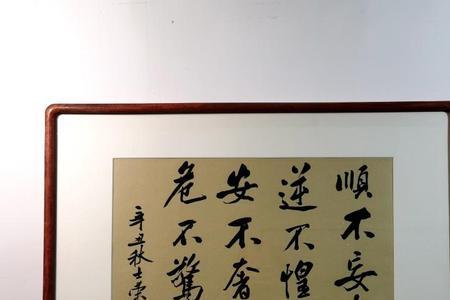 順不妄
逆不惶
安不奢
危不驚
辛丑秋士